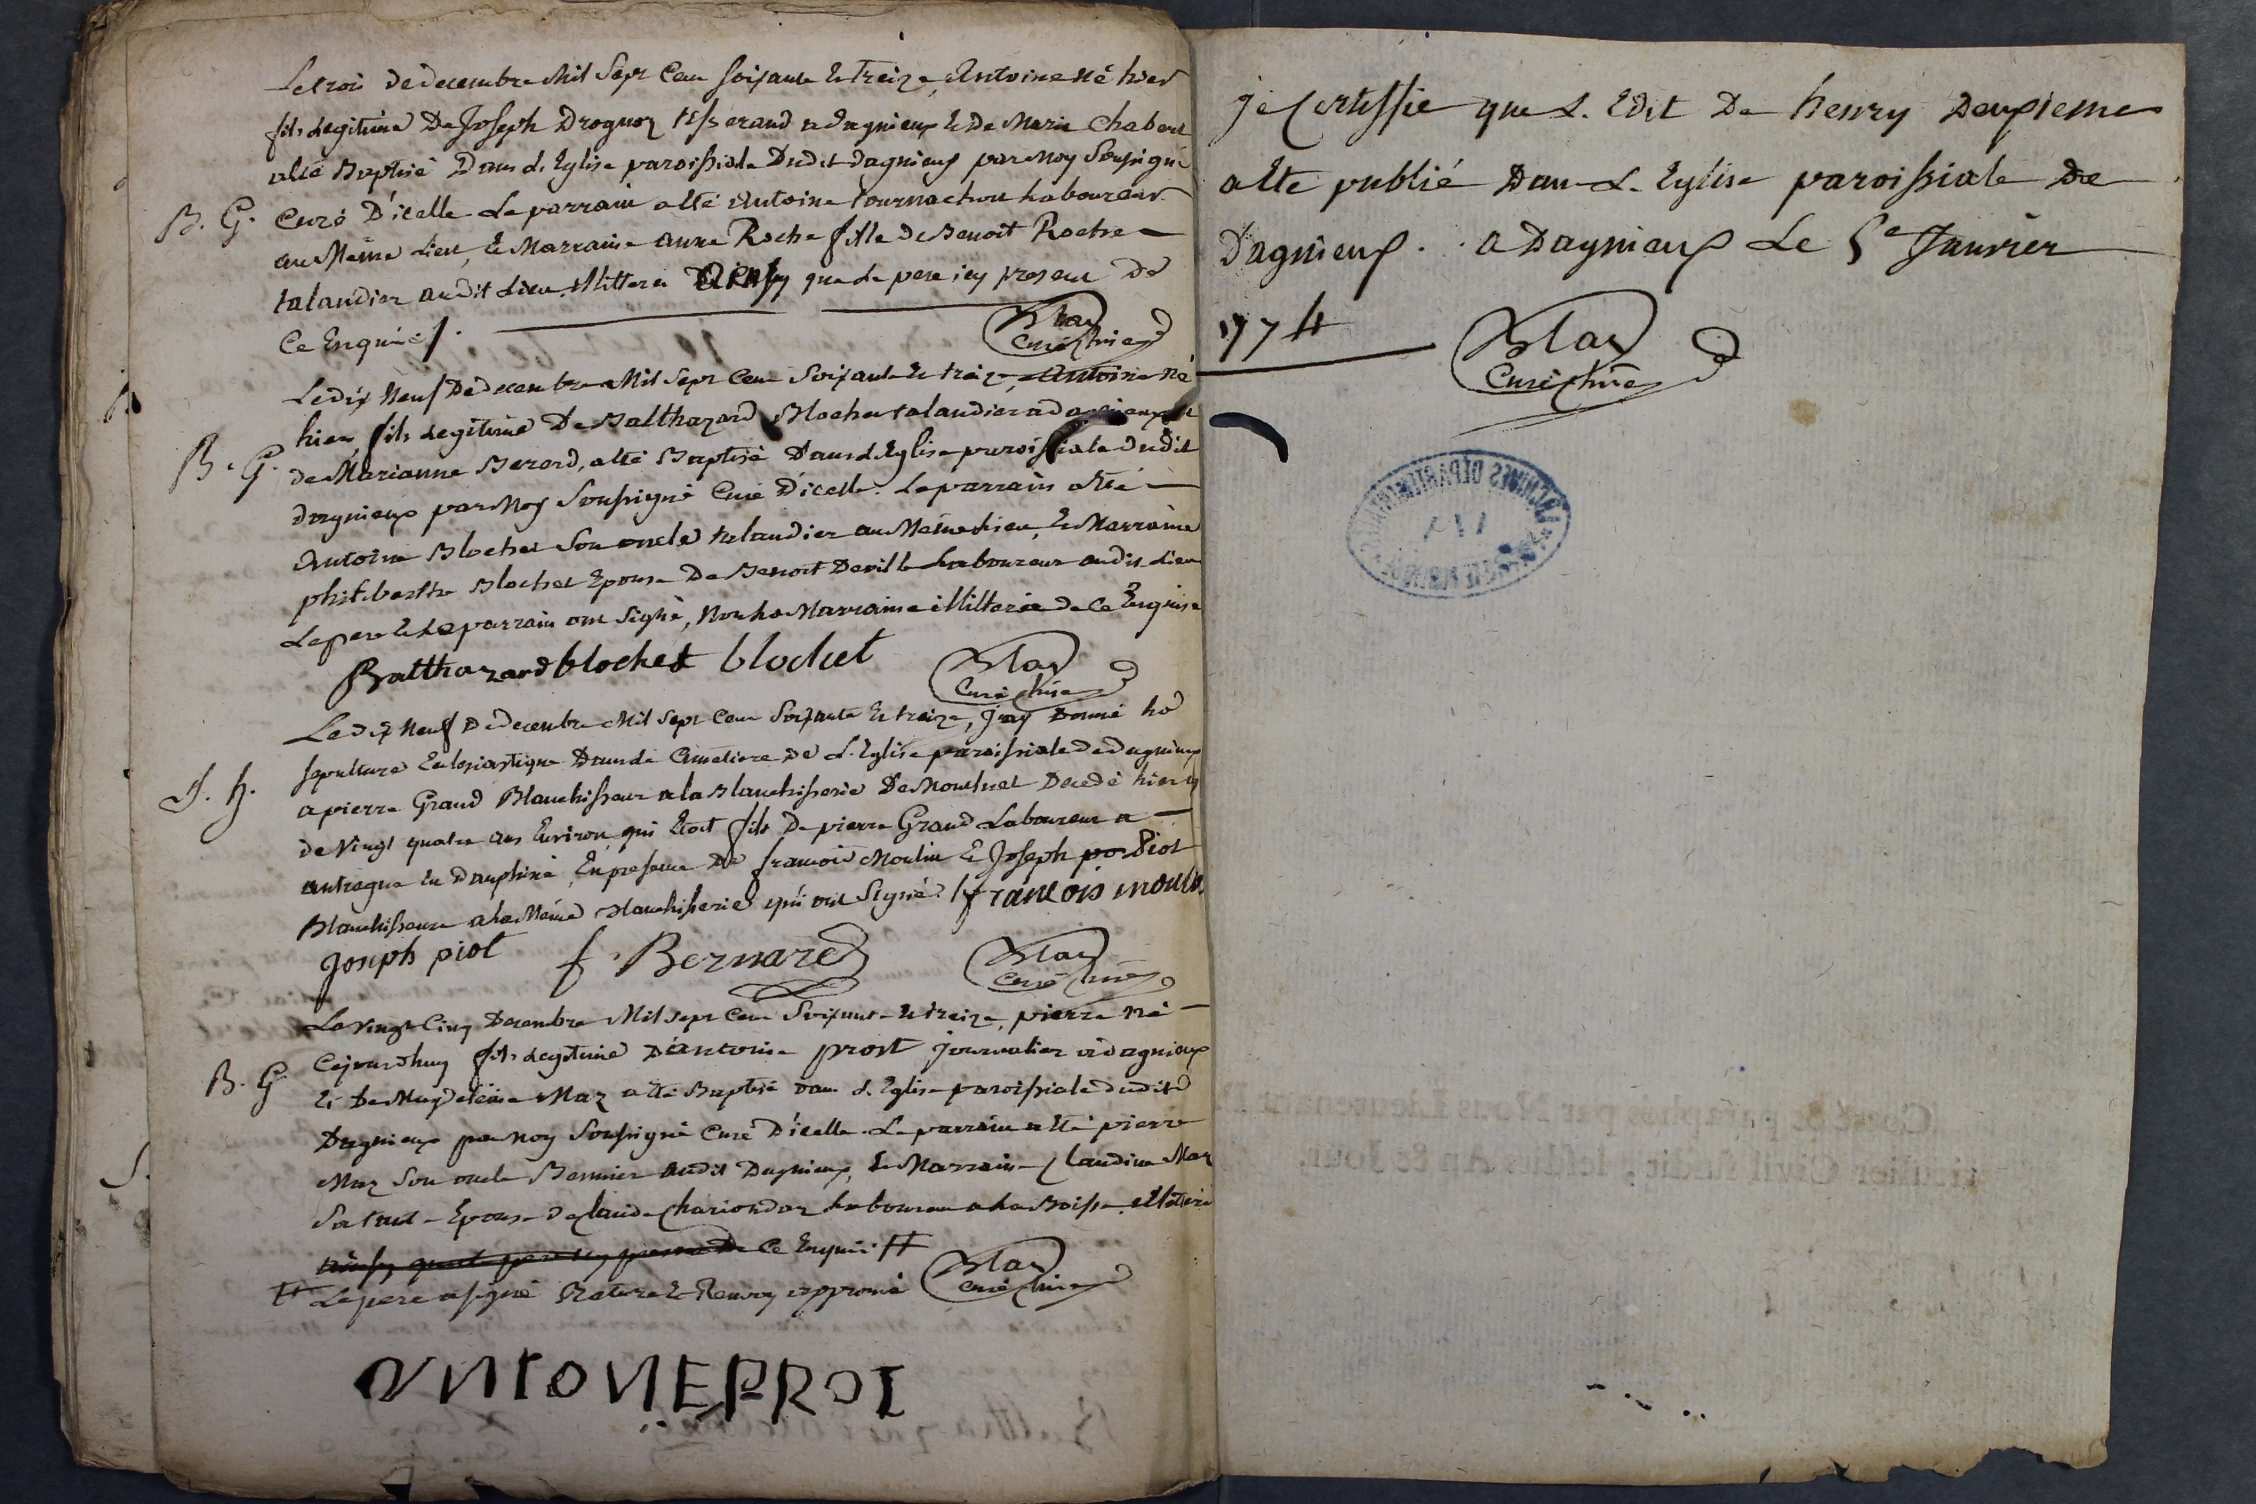 Le trois de decembre Mil Sept Cent soixante Et treize, Antoine né hier
fils Legitime De Joseph Droguoz tisserand a dagnieux Et De Marie Chabert
a été Baptisé Dans L'Eglise paroissiale Dudit dagnieux par Moy Soussigné
B. G. Curé D'icelle Le parrain a été Antoine tournachon Laboureur
au Même Lieu, Et Marraine anne Roche fille De Benoit Roche
talandier audit Lieu, illitteré ainsy que Le pere icy present De
Ce Enquis.
Blas
Curé
Le dix Neuf De decembre Mil Sept Cent Soixante Et treize, Antoine Né
hier, fils Legitime De Balthazard Blochet talandier a dagnieux Et
B. G. de Marianne Berard, a été Baptisé Dans L'Eglise paroissiale dudit
dagnieux par Moy Soussigné Curé D'icelle. Le parrain a été
Antoine Blochet Son oncle talandier au Même Lieu, Et Marraine
philiberthe Blochet Epouse De Benoit Deville Laboureur audit Lieu
Le pere Et Le parrain ont Signé, Non La Marraine illitterée de Ce Enquise
Balthazard blochet blochet
Blas
Curé
Le dix Neuf De decembre Mil Sept Cent Soixante Et treize, J'ay Donné La
sepulture Eclesiastique Dans Le Cimetiere De L'Eglise paroissiale De dagnieux
S. h. a pierre Grand Blanchisseur a la Blanchisserie De Montluel Decedé hier
de Vingt quatre ans Environ, qui Etoit fils De pierre Grand Laboureur a
antragne En Dauphiné, En presence De francois Moulin Et Joseph Piot
Blanchisseurs a La Même Blanchisserie qui ont Signé. francois moulin
Joseph piot f. Bernard
Blas
Curé
Le Vingt Cinq Decembre Mil Sept Cent Soixante Et treize, pierre Né
Cejourdhuy fils Legitime D'antoine prost journalier a dagnieux
B. G. Et De Magdeleine Maz a été Baptisé dans L'Eglise paroissiale dudit
Dagnieux par Moy Soussigné Curé D'icelle. Le parrain a été pierre
Maz Son oncle audit Dagnieux, Et Marraine Claudine Maz
Sa tante Epouse de Claude Chariondaz Laboureur a La Boisse, illiteré
ainsy que Le pere icy present De Ce Enquis #
# Le pere a signé Rature Et Renvoy approuvé
Blas
Curé
ANTOINE PROT
je Certiffie que L'Edit De henry Deuxieme
a été publié Dans L'Eglise paroissiale De
Dagnieux. a Dagnieux Le 5e Janvier
1774
Blas
Curé